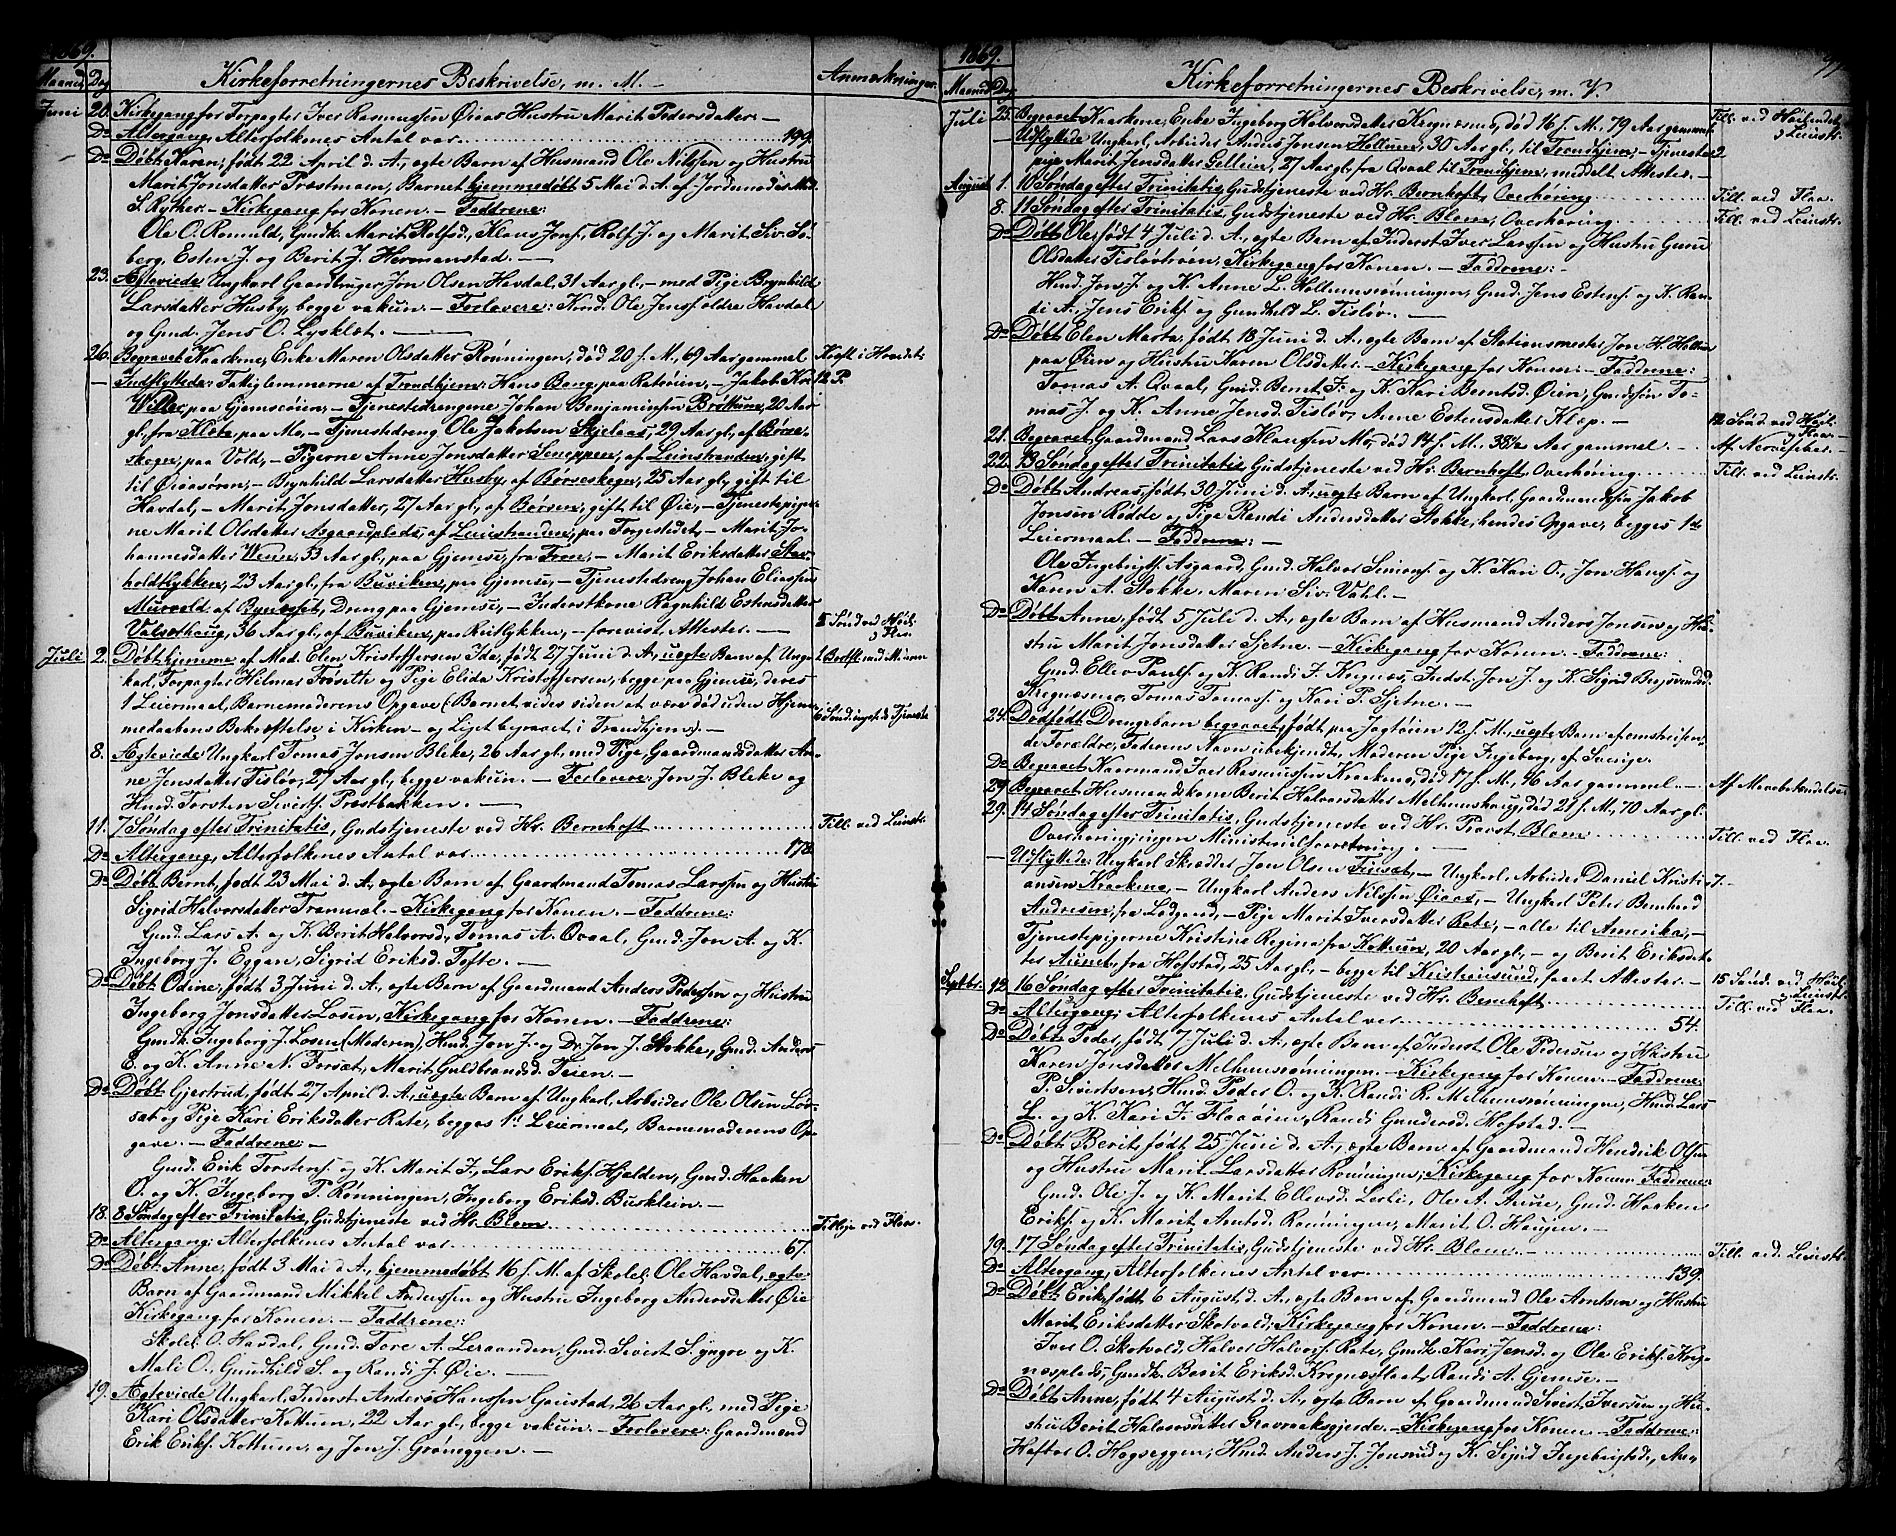 1869.
Maaned Dag Kirkeforretningernes Beskrivelse, m. M. Anmærkninger
Juni 20. Kirkegang for Forpagter Iver Rasmussen Øiaas Hustru Marit Pedersdatter.
Do Altergang, Alterfolkenes Antal var 199.
Do Døbt Karen, født 22 April d. A., ægte Barn af Husmand Ole Nilssen og Hustru
Marit Jonsdatter Prestmoen, Barnet hjemmedøbt 5 Mai d. A. af Jordmoder Mad.
S. Ryther. Kirkegang for Konen. Faddrene:
Ole O. Romuld, Gmdk. Marit Rolfsd., Klaus Jonss., Rolf J. og Marit Siv. Sø-
berg, Esten J. og Berit J. Hermanstad.
23. Ægteviede Ungkarl Gaardbruger Jon Olsen Havdal, 31 Aar gl., med Pige Brynhild
Larsdatter Husby, begge vakcin. Forlovere: Kmd. Ole Jenss. ældre Havdal
og Gmd. Jens O. Lysklæt.
26. Begravet Kaarkone, Enke Maren Olsdatter Rønningen, død 20 s. M., 69 Aar gammel
Indflyttede: Fatiglemmerne af Trondhjem: Hans Bang, paa Ratsøien, Jakob Kr. 12 P.
Willer, paa Gjemsøien, Tjenestedrengene Johan Benjaminsen Brøttum, 20 Aar
gl., fra Klæbo, paa Mo, Tjenestedreng Ole Jakobsen Skjelaas, 29 Aar gl., af Børse-
skogn, paa Vold, Pigerne Anne Jonsdatter Sneppen, af Leinstranden, gift
til Øiaasøren, Brynhild Larsdatter Husby, af Børseskogn, 25 Aar gl., gift til
Havdal, Marit Jonsdatter, 27 Aar gl., af Børsen, gift til Øie, Tjenestepiger-
ne Marit Olsdatter Asgaardplads, af Leinstranden, paa Forsetet, Marit Jo-
hannesdatter Weum, 33 Aar gl., paa Gjemse, fra Froen, Marit Eriksdatter Stav-
holdtlykken, 23 Aar gl., fra Buviken, paa Gjemse, Tjenestedreng Johan Eliassen
Murvold af Bynesset, Dreng paa Gjemse, Inderstkone Ragnhild Estensdatter
Valsethaug, 36 Aar gl., af Buviken, paa Reitlykken, forevist Attester.
Juli 2. Døbt hjemme af Mad. Elen Kristoffersen Ida, født 27 Juni d. A., uægte Barn af Ung-
karl, Forpagter Hilmar Frøseth og Pige Elida Kristoffersen, begge paa Gjemse, deres
1 Leiermaal, Barnemoderens Opgave (Barnet vides siden at være død uden Hjem-
medaabens Bekræftelse i Kirken og Liget begravet i Trondhjem).
8. Ægteviede Ungkarl Tomas Jonsen Bleke, 26 Aar gl., med Pige, Gaardmandsdatter An-
ne Jensdatter Tisløv, 27 Aar gl., begge vakcin. Forlovere: Jon J. Bleke og
Husmd. Torsten Sivertss. Prestbakken.
11. 7 Søndag efter Trinitatis, Gudstjeneste ved Hr. Bernhoft Till. ved Leinstr.
Do Altergang, Alterfolkenes Antal var 178.
Do Døbt Bernt, født 23 Mai d. A., ægte Barn af Gaardmand Tomas Larssen og Hustru
Sigrid Halvorsdatter Tranmæl. Kirkegang for Konen. Faddrene:
Gmd. Lars A. og K. Berit Halvorsd., Tomas A. Qvaal, Gmd. Jon A. og K.
Ingeborg J. Eggan, Sigrid Eriksd. Tofte.
Do Døbt Odine, født 3 Juni d. A., ægte Barn af Gaardmand Anders Pedersen og Hustru
Ingeborg Jonsdatter Losen, Kirkegang for Konen. Faddrene:
Gmdk. Ingeborg J. Losen (Moderen), Husmd. Jon J. og Dr. Jon J. Stokke, Gmd. Anders
E. og K. Anne N. Forsæt, Marit Guldbrandsd. Teien.
Do Døbt Gjertrud, født 27 April d. A., uægte Barn af Ungkarl, Arbeider Ole Olsen Løv-
sæt og Pige Kari Eriksdatter Rate, begges 1st Leiermaal, Barnemoderens Op-
gave. Faddrene:
Gmd. Erik Torstens. og K. Marit J., Lars Erikss. Hjelden, Gmd. Haaken
O. og K. Ingeborg P. Rønningen, Ingeborg Eriksd. Busklein.
18. 8 Søndag efter Trinitatis, Gudstjeneste ved Hr. Blom Tillige ved Flaa.
Do Altergang; Alterfolkenes Antal var 67.
Do Døbt Anne, født 3 Mai d. A., hjemmedøbt 16 s. M. af Skolel. Ole Havdal, ægte
Barn af Gaardmand Mikkel Anderssen og Hustru Ingeborg Andersdatter Øie
Kirkegang for Konen. Faddrene:
Skolel. O. Havdal, Gmd. Tore A. Leraanden, Gmd. Sivert S. yngre og K.
Mali O., Gundhild S. og Randi J. Øie.
19. Ægteviede Ungkarl, Inderst Anders Hanssen Gaustad, 26 Aar gl., med Pige
Kari Olsdatter Kottum, 22 Aar gl., begge vakcin. Forlovere: Gaardmand
Erik Erikss. Kottum, og Jon J. Grøneggen.
1869.
Maaned Dag Kirkeforretningernes Beskrivelse, m. V.
Juli 25. Begravet Kaarkone, Enke Ingeborg Halvorsdatter Kregnæsmo, død 16 s. M., 79 Aar gammel. Till. ved Høilandet
Udflyttede Ungkarl, Arbeider Anders Jonsen Hollum, 30 Aar gl., til Trondhjem, Tjeneste-
pige Marit Jensdatter Gellein, 27 Aar gl., fra Qvaal til Trondhjem, meddelt Attester.
August 1. 10 Søndag efter Trinitatis, Gudstjeneste ved Hr. Bernhoft, Overhøring Till. ved Flaa.
8. 11 Søndag efter Trinitatis, Gudstjeneste ved Hr. Blom, Overhøring Till. ved Leinstr.
Do Døbt Ole, født 4 Juli d. A., ægte Barn af Inderst Iver Larssen og Hustru Guru
Olsdatter Tisløvtroen, Kirkegang for Konen. Faddrene:
Husmd. Jon J. og K. Anne L. Hollumsrønningen, Gmd. Jens Estenss. og K. Ran-
di A., Jens Erikss. og Gundhild L. Tisløv.
Do Døbt Elen Marta, født 18 Juni d. A., ægte Barn af Stationsmester Jon H. Hollum
paa Øien og Hustru Karen Olsdatter. Kirkegang for Konen. Faddrene:
Tomas A. Qvaal, Gmd. Bernt F. og K. Kari Berntsd. Øien, Gmdsøn To-
mas J. og K. Anne Jensd. Tisløv, Anne Estensdatter Klæp.
21. Begravet Gaardmand Lars Klausen Mo, død 14 s. M., 38½ Aar gammel. Af Nervefeber.
22. 13 Søndag efter Trinitatis, Gudstjeneste ved Hr. Bernhoft, Overhøring Till. ved Leinstr.
Do Døbt Andreas, født 30 Juni d. A., uægte Barn af Ungkarl, Gaardmandssøn Jakob
Jonsen Rødde og Pige Randi Andersdatter Stokke, hendes Opgave, begges 1ste
Leiermaal. Faddrene:
Ole Ingebrigts. Asgaard, Gmd. Halvor Simens. og K. Kari O., Jon Hanss. og
Karen A. Stokke, Maren Siv. Vahl.
Do Døbt Anne, født 5 Juli d. A., ægte Barn af Husmand Anders Jonsen og Hu-
stru Marit Jonsdatter Sjetne. Kirkegang for Konen. Faddrene:
Gmd. Ellev Paulss. og K. Randi F. Kregnæs, Indst. Jon J. og K. Sigrid Brynsvendsd.
Kregnæsmo, Tomas Tomass. og Kari P. Sjetne.
24. Dødfødt Drengebarn begravet, født paa Jagtøien 12 s. M., uægte Barn af omstreifen-
de Forældre, Faderens Navn ubekjendt, Moderen Pige Ingeborg, af Sverige.
Do Begravet Kaarmand Iver Rasmussen Kroekmo, død 17 s. M., 96 Aar gammel.
29. Begravet Husmandskone Berit Halvorsdatter Melhumshaug, død 21 s. M., 70 Aar gl.
29. 14 Søndag efter Trinitatis, Gudstjeneste ved Hr. Provst Blom Till. ved Flaa.
Overhøring, ingen Ministerialforretning.
Udflyttede: Ungkarl Skrædder Jon Olsen Fuusæt, Ungkarl, Arbeider Daniel Kristi- 7.
ansen Kroekmo, Ungkarl Anders Nilssen Øiaas, Ungkarl Peter Bernhard
Andresen, fra Lodgaard, Pige Marit Iversdatter Rate, alle til Amerika,
Tjenestepigerne Kristine Regina fra Kottum, 20 Aar gl., og Berit Eriksdat-
ter Aunet, fra Hofstad, 25 Aar gl., begge til Kristiansund, faaet Attester.
Septbr. 12. 16 Søndag efter Trinitatis, Gudstjeneste ved Hr. Bernhoft Till. ved Flaa.
Do Altergang; Alterfolkenes Antal var 54.
Do Døbt Peder, født 7 Juli d. A., ægte Barn af Inderst Ole Pedersen og Hustru
Karen Jonsdatter Melhumsrønningen. Kirkegang for Konen. Faddrene:
P. Sivertsen, Husmd. Peder O. og K. Randi R. Melhumsrønningen, Husmd. Lars
L. og K. Kari F. Flaaøien, Randi Gundersd. Hofstad.
Do Døbt Berit, født 25 Juni d. A., ægte Barn af Gaardmand Hendrik Olsen
og Hustru Marit Larsdatter Rønningen, Kirkegang for Konen. Faddrene:
Gmd. Ole J. og K. Marit Ellevsd. Lerli, Ole A. Aune, Gmd. Haaken
Erikss. og K. Marit Arntsd. Rønningen, Marit O. Haugen.
19. 17 Søndag efter Trinitatis, Gudstjeneste ved Hr. Blom Till. ved Leinstr.
Do Altergang, Alterfolkenes Antal var 139.
Do Døbt Erik, født 6 August d. A., ægte Barn af Gaardmand Ole Arntsen og Hustru
Marit Eriksdatter Skotvold, Kirkegang for Konen. Faddrene:
Iver O. Skotvold, Halvor Halvors. Rate, Gmdk. Kari Jensd. og Ole Erikss. Kreg-
næsplads, Gmdk. Berit Eriksd. Kregnæsflaat, Randi A. Gjemse.
Do Døbt Anne, født 4 August d. A., ægte Barn af Gaardmand Sivert Iversen og Hu-
stru Berit Halvorsdatter Gravraaksgjerde. Kirkegang for Konen. Faddrene:
Haftor O. Hagseggen, Husmd. Anders J. Jonsrud og K. Sigrid Ingebrigtsd., An-